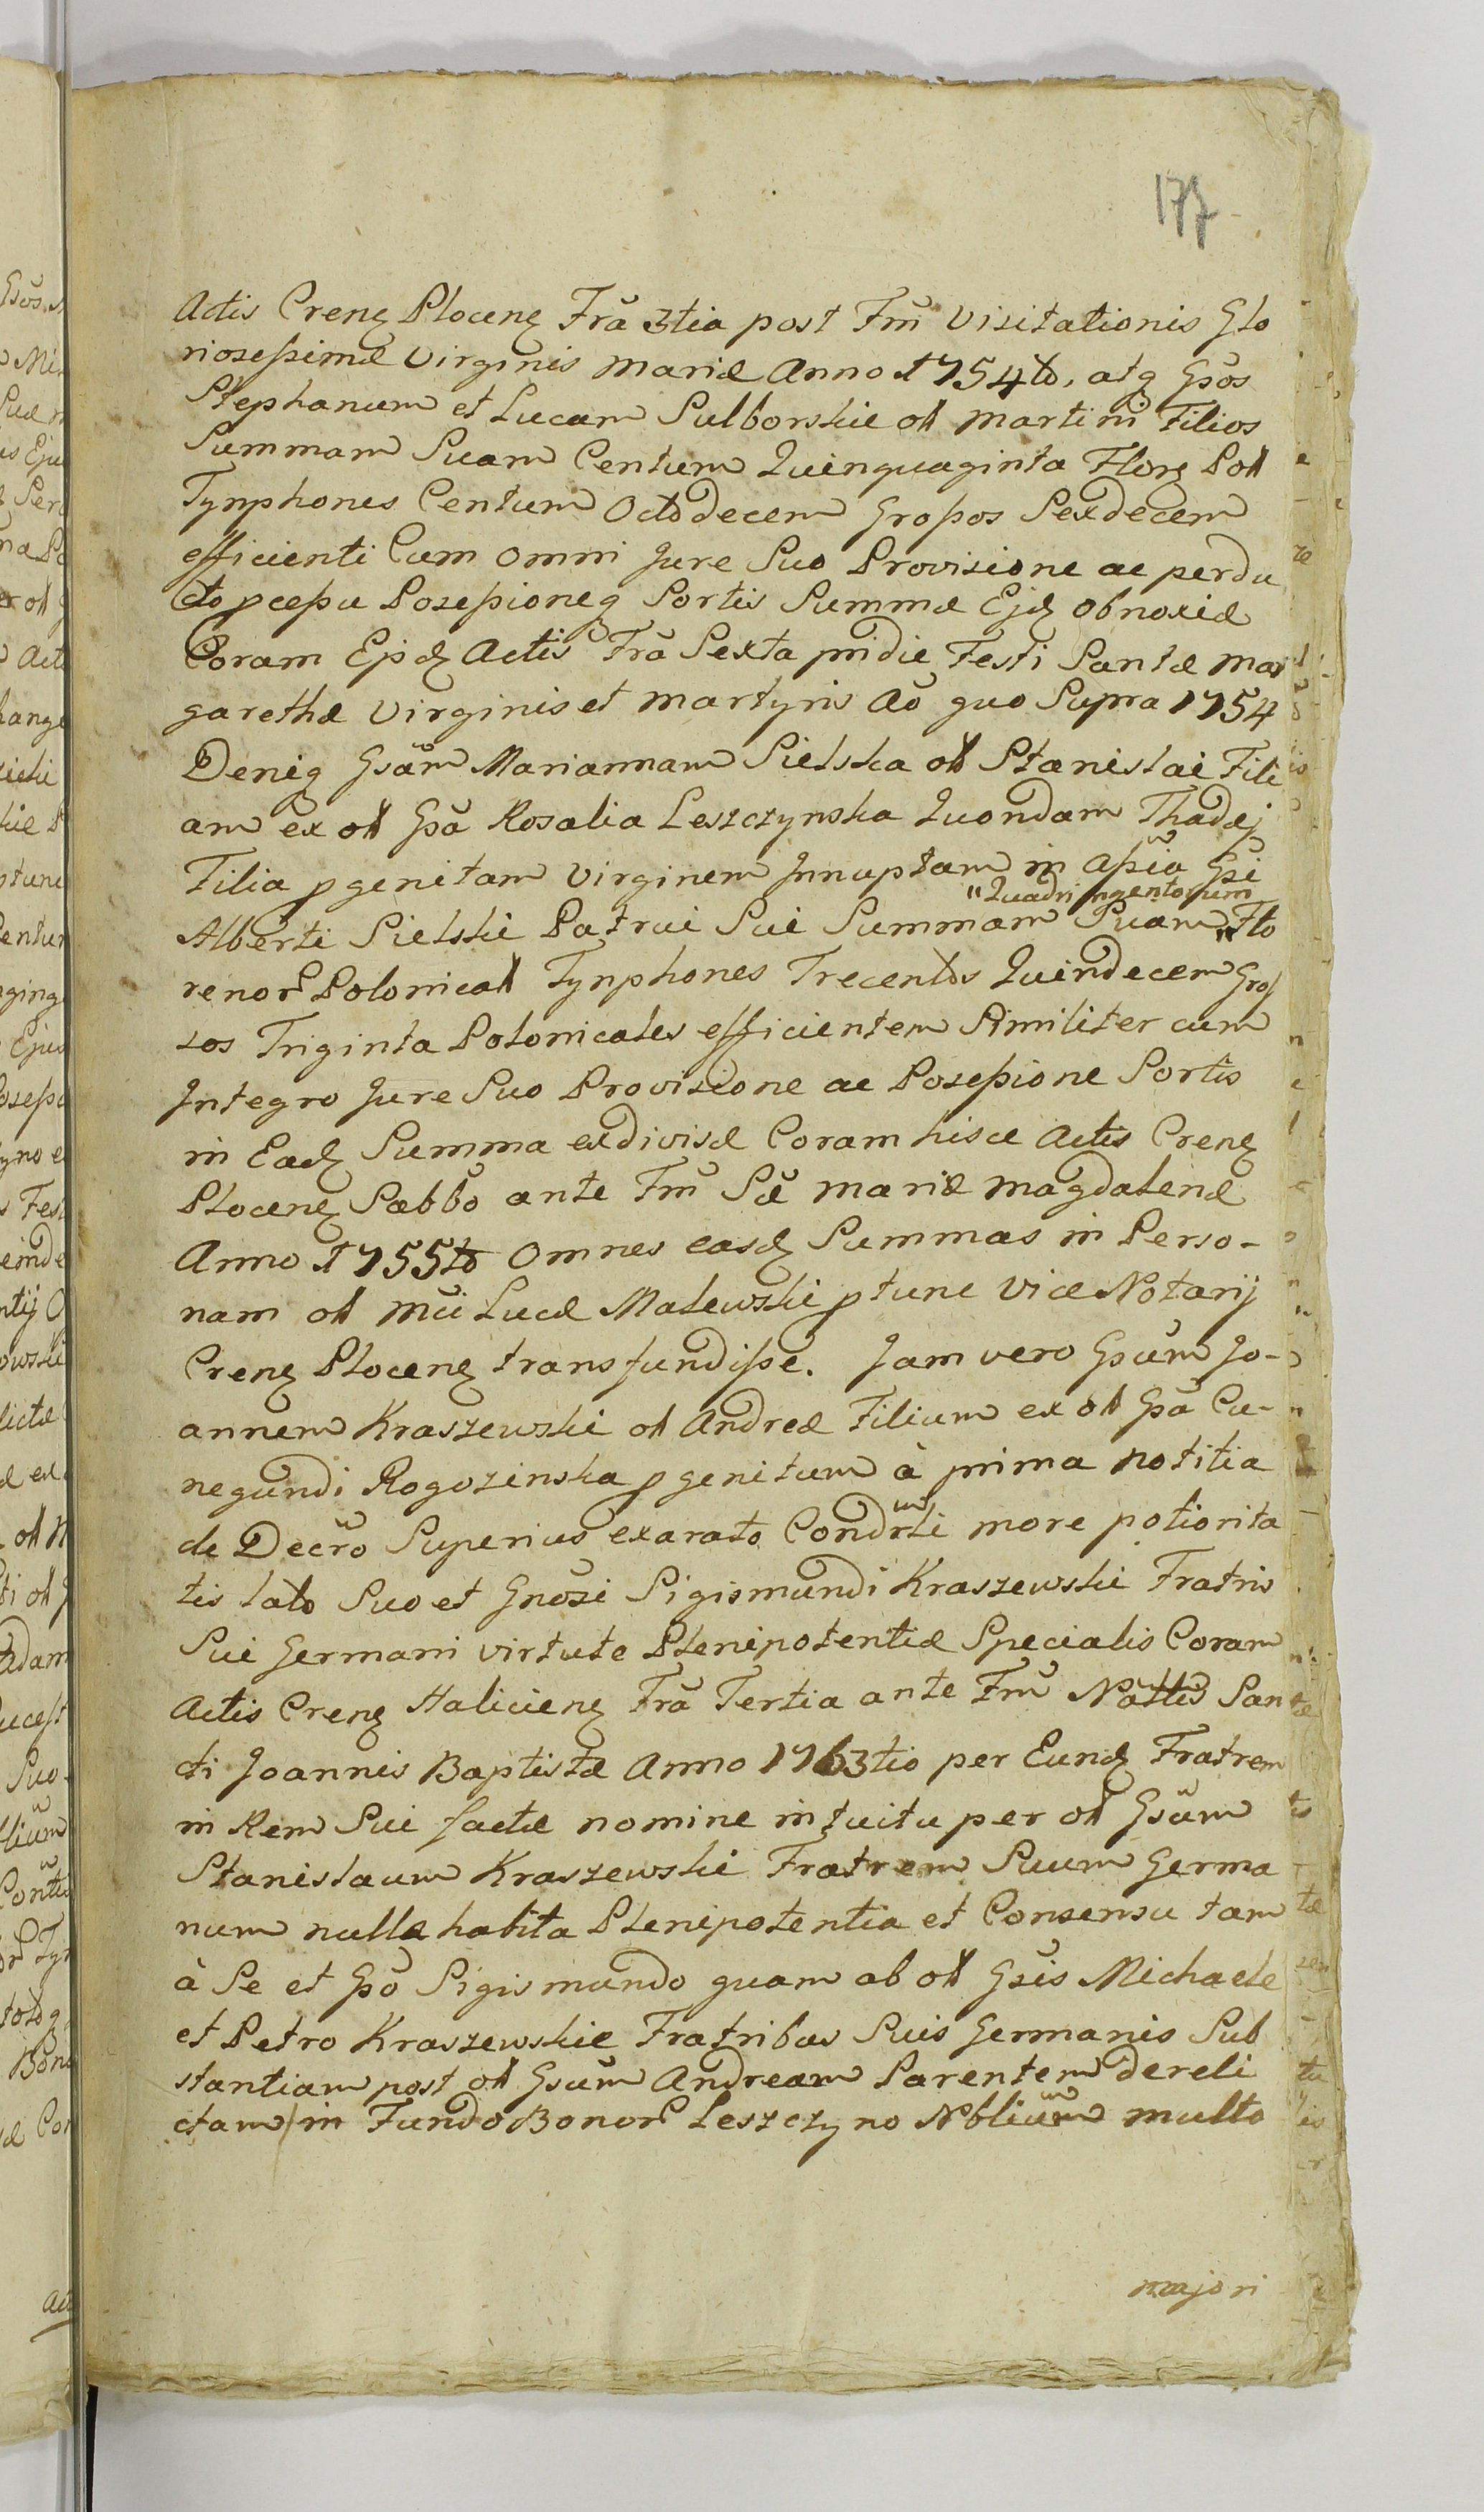 177
Actis Crenꝫ Plocenꝫ Fra 3tia post Fm̃ Visitationis Glo
rioseßimæ Virginis Mariæ Anno 1754to, atq Gsos
Stephanum et Lucam Sulborskie olł Martini Filios
Summam Suam Centum Quinquaginta Florꝫ Poll
Tynphones Centum Octodecem Großos Sexdecem
efficienti Cum omni Jure Suo Provisione ac perdu
cto pceßu Poseßioneq Sortis Summæ Ejdꝫ obnoxiæ
Coram Ejsdꝫ Actis Fra Sexta pridie Festi Santæ Mar
garethæ Virginis et Martyris Ao quo Supra 1754
Deniq Gsam Mariannam Sielska olł Stanislai Fili
am ex olł Gsa Rosalia Leszczynska Quondam Thadæj
Filia pgenitam Virginem Innuptam in aßia Gsi
"Quadringentorum
Alberti Sielski Patrui Sui Summam Suam " Flo
renor Polonicał Tynphones Trecentos Quindecem Gros
sos Triginta Polonicales efficientem Similiter cum
Integro Jure Suo Provisione ac Poseßione Sortis
in Eadꝫ Summa exdivisæ Coram hisce Actis Crenꝫ
Plocenꝫ Sabbo ante Fm̃ Sæ Mariæ Magdalenæ
Anno 1755to Omnes easdꝫ Summas in Perso-
nam olł Mci Lucæ Malewski p tunc Vice Notarij
Crenꝫ Plocenꝫ transfundiße. Jam vero Gsum Jo-
annem Kraszewski olł Andreæ Filium ex olł Gsa Cu-
negundi Rogozinska pgenitum à prima notitia
de Decro Superius exarato Condrti more potiorita
tis lato Suo et Gnosi Sigismundi Kraszewski Fratris
Sui Germani virtute Plenipotentiæ Specialis Coram
Actis Crenꝫ Halicienꝫ Fra Tertia ante Fm̃ Nattis San
cti Joannis Baptistæ Anno 1763tio per Eundꝫ Fratrem
in Rem Sui factæ nomine intuitu per olł Gsum
Stanislaum Kraszewski Fratrem Suum Germa
num nulla habita Plenipotentia et Consensu tam
à Se et Gso Sigismundo quam ab olł Gsis Michaele
et Petro Kraszewskie Fratribus Suis Germanis Sub
stantiam post olł Gsum Andream Parentem dereli
ctam in Fundo Bonor Leszczyno Nblium multo
majori